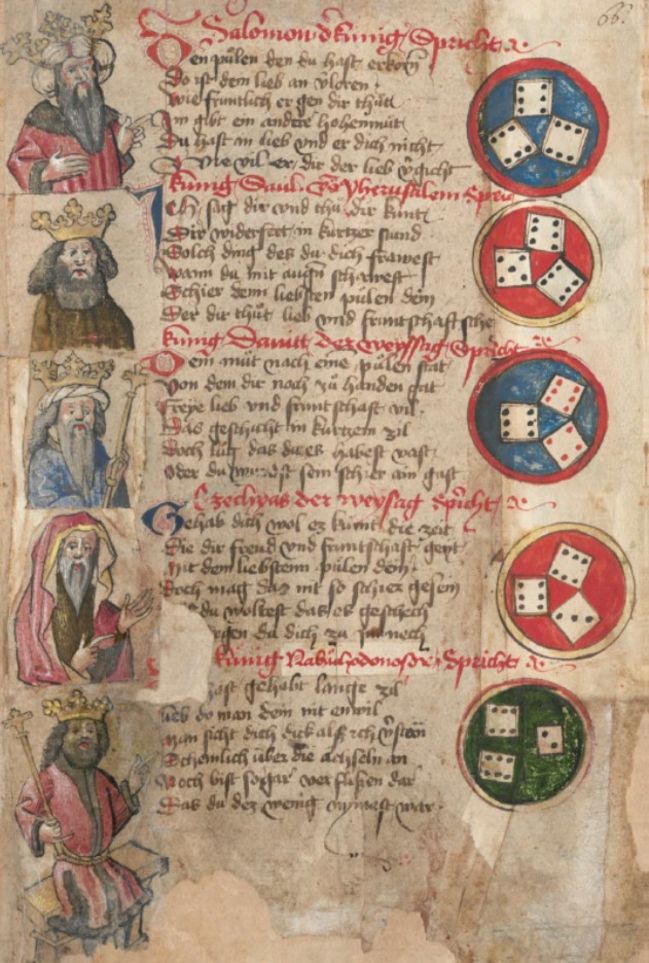 Salomon d kunig Spricht
Den pulen den du hast erkorn
Do ist dem lieb an vloren
Wie fruntlich er gen dir thut
Im gibt ein andre hohenmut
Du hast in lieb vnd er dich nicht
Wie vil er dir der lieb vgicht
kunig Saul von yherusalem Spricht
Ich sag dir vnd thu dir kunt
Dir widerfert in kurtzer stund
Solch ding des du dich frawest
wann du mit augn schawest
Schier dem liebsten pulen dein
Der dir thut lieb vnd fruntschaft schein
kunig Dauitt der weyssag Spricht
Dein mut nach eine pulen stat
Von dem dir noch zu handen gat
Freye lieb vnd fruntschaft vil
Das geschicht in kurtzem zil
Doch lug das du es habest vast
Oder du wurdst sein schier ain gast
Ezechyas der weysag Spricht
Gehab dich wol ez kumt die zeit
Die dir freud vnd fruntschaft geyt
Mit dem liebstenn pulen dein
Doch mag daz nit so schier gesein
du woltest das es geschech
da dich zu
kunig Nabuchodonosor Spricht
hast gehabt lange zil
lieb do man dein nit enwil
man sicht dich dick als ich
Schemlich uber die achseln an
Noch bist sogar ver flissen dar
Das du dez wenig nymest war